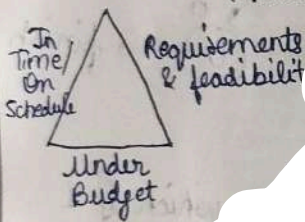 In
Time/
On
Schedule
Requirements
& feadibilit
Under
Budget